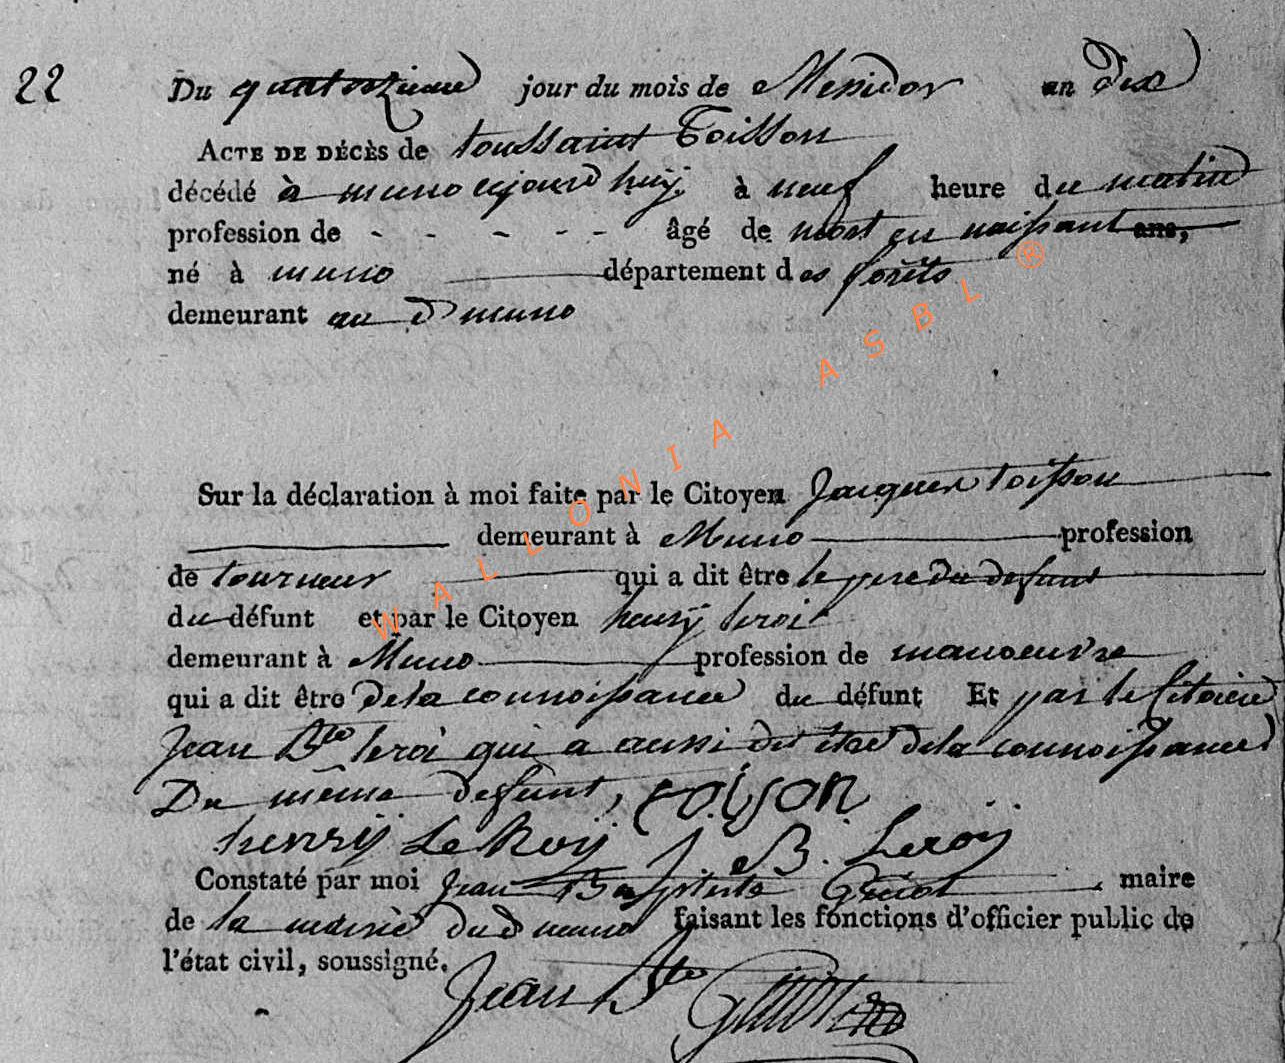 22 Du quatorzieme jour du mois de Messidor an dix
ACTE DE DÉCÈS de toussaint Toisson
décédé à muno aujourd huij à neuf heure du matin
profession de - - - - - âgé de mort en naissant ans,
né à muno département des forêts
demeurant au d muno
Sur la déclaration à moi faite par le Citoyen Jacques toisson
demeurant à Muno profession
de tourneur qui a dit être le pere du defunt
du défunt et par le Citoyen henrij leroi
demeurant à Muno profession de manoeuvre
qui a dit être de la connoissance du défunt Et par le Citoien
Jean Bte leroi qui a aussi dit être de la connoissance
Du même defunt, toison
henrij Le Roij J. B. Leroij
Constaté par moi Jean Baptiste maire
de la mairie dud muno faisant les fonctions d'officier public de
l'état civil, soussigné.
Jean Bte
WALLONIA ASBL ®